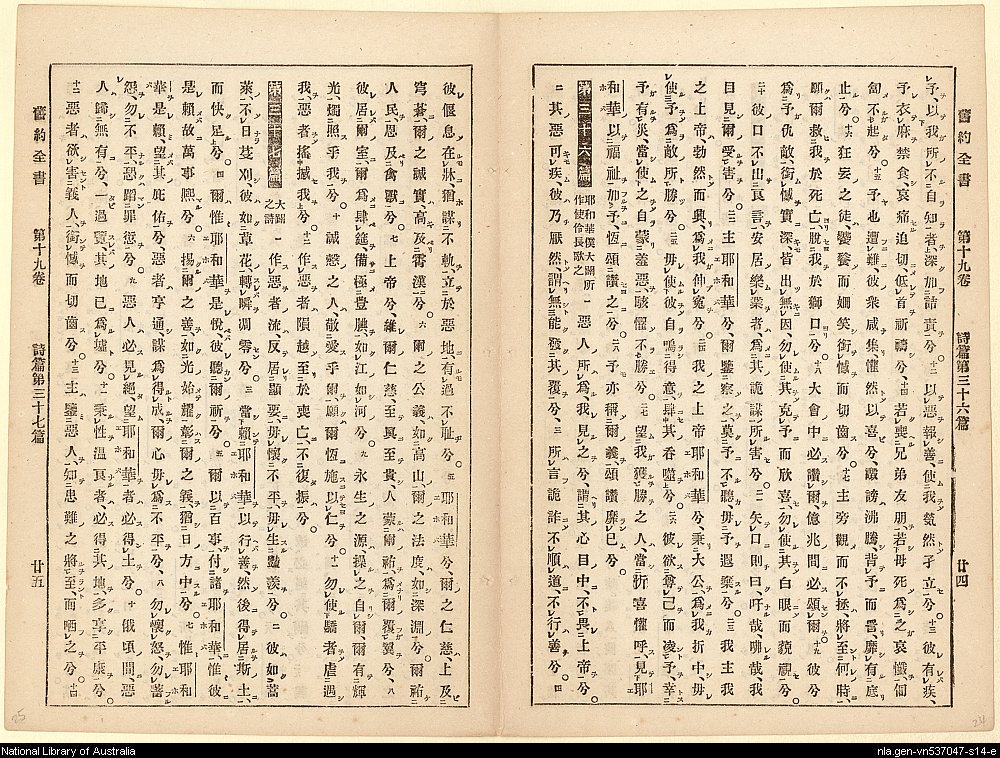 舊約全書 第十九卷 詩篇第三十六篇 廿四
予、以我所不自知者、深加詰責兮。十二以惡報善、使我煢然孑立兮。十三彼有疾、
予衣麻禁食、哀痛迫切、低首祈禱兮。十四若喪兄弟友朋、若母死爲之哀慽、傴
匐不起兮。十五予也遭難、彼衆咸集、懽然以喜兮、讒謗沸騰、背予而詈、靡有底
止兮。十六狂妄之徒、饕餮而姍笑、銜憾而切齒兮。十七主旁觀而不拯、將至何時、
願爾救我於死亡、脫我於獅口兮。十八大會中必讚爾、億兆間必頌爾。十九彼兮
爲予仇敵、銜憾實深、皆出無因、勿使其克予而欣喜、勿使其白眼而藐視兮
二十彼口不出良言、安居樂業者、爲其詭謀所害兮。二一矢口則曰、吁哉、咈哉、我
目見爾受害兮。二二主耶和華兮、爾鑒察之、莫予不聽、毋予遐棄兮。二三我主我
之上帝、勃然而興、爲我伸寃兮。二四我之上帝耶和華兮、秉大公、爲我折中、毋
使予爲敵所勝兮。二五毋使彼自鳴得意、肆其吞噬兮。二六彼欲尊己而凌予、幸
予有災、當使之自蒙羞惡、駭懼不勝兮。二七望我獲勝之人、當訢喜懽呼、見耶
和華以福祉加予、恆頌讚之兮。二八予亦稱爾義、頌讚靡已兮。
第三十六篇 耶和華僕大闢所作使伶長歌之 一惡人所爲、我見之兮、其心目中、不畏上帝兮。
二其惡可疾、彼乃厭然、謂無能發其覆兮、三所言詭詐、不順道、不行善兮。四
彼偃息在牀、猶謀不軌、立於惡地、有過不耻兮。五耶和華兮、爾之仁慈、上及
穹蒼、爾之誠實、高及霄漢兮。六爾之公義、如高山、爾之法度、如深淵兮。爾祐
人民、恩及禽獸兮。七上帝兮、維爾仁慈、至眞至貴、人蒙爾祐、爲爾覆翼兮、八
彼居爾室、爾爲肆筵、備極豐腆、如江如河兮。九永生之源、操之自爾、爾有輝
光、燭照乎我兮。十誠慤之人、敬愛乎爾、願爾恆施以仁兮。十一勿使驕者虐遇
我、惡者搖撼我兮。十二作惡之人、隕越至於喪亡、不復振兮。
第三十七篇 大闢之詩 一作惡者流、反居顯要、毋懷不平、毋生豔羨兮。二彼如蒿
萊、不日芟刈、彼如草花、轉瞬凋零兮。三當賴耶和華、以行善、然後得居斯土、
而快足兮。四爾惟耶和華是悅、彼聽爾祈兮。五爾以百事、付諸耶和華、惟彼
是賴、故萬事熙兮。六揚爾之善、如光始耀、彰爾之義、猶日方中兮。七惟耶和
華是賴、望其庇佑兮、惡者亨通、謀爲得成、爾心毋爲不平兮、八勿懷怒、勿蓄
怨、勿不平、恐蹈罪愆兮。九惡人必見絕、望耶和華者、必得土兮。十俄頃間、惡
人歸無有兮、一過覽、其地已爲墟兮。十一秉性溫良者、必得其地、多享平康兮。
十二惡者欲害義人、銜憾而切齒兮。十三主鑒惡人、知患難之將至、而哂之兮。十四
舊約全書 第十九卷 詩篇第三十七篇 廿五
25
24
National Library of Australia
nla.gen-vn537047-s14-e